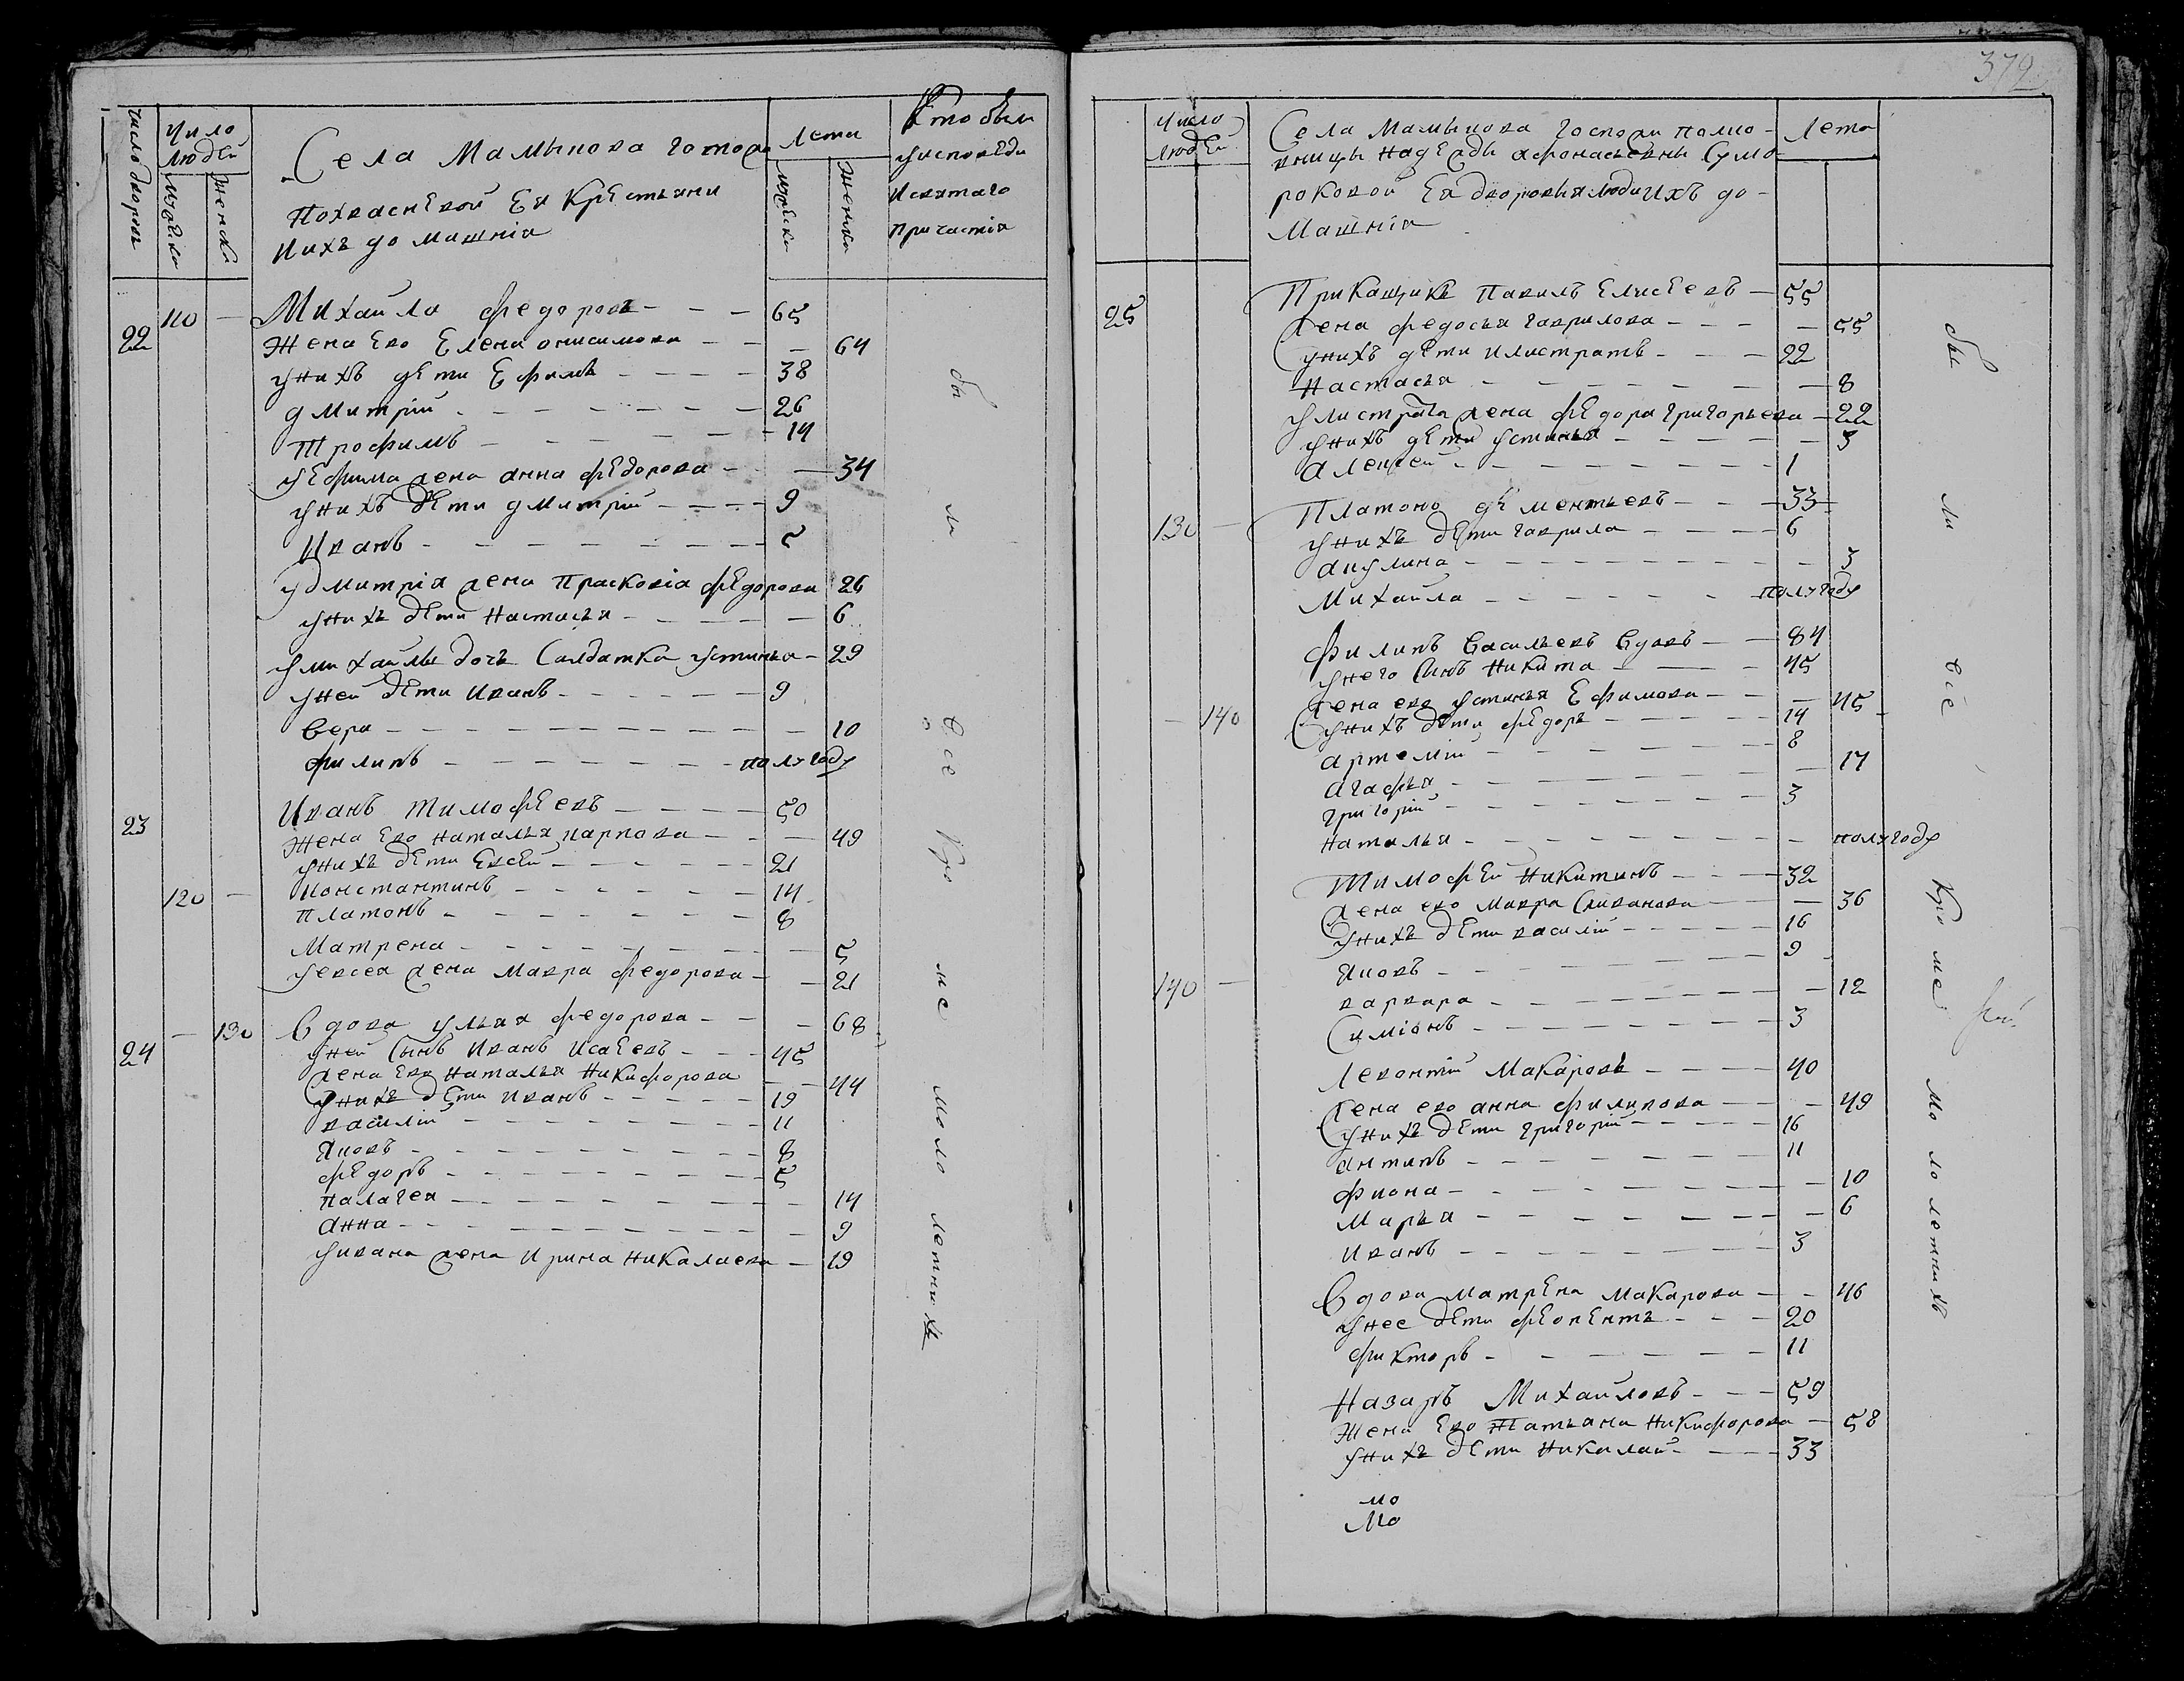 число дворовъ
число людей
мужеска
женска
Села Мамынова госпожи
Похваснѣвой Ея Крестьяни
ихъ домашнія
Лета
мужеска
женска
Кто были
уисповѣди
исвятаго
Причастія
22
110 —
Михаила федоровъ - - - 65
жена Ево Елена онисимова - - - 64
унихъ дѣти Ефимъ - - - - 38
дмитрій - - - - - - 26
Трофимъ - - - - - - 14
уЕфима жена анна фѣдорова - - 34
унихъ дѣти дмитрій - - - - 9
Иванъ - - - - - - - 5
удмитрія жена Прасковіа фѣдорова 26
унихъ дѣти настасья - - - - - 6
умихаилы дочь Салдатка устинья - 29
уней дѣти иванъ - - - - - - 9
вера - - - - - - - - - 10
филипъ - - - - - - - полугоду
23
Иванъ тимофѣевъ - - - - 50
жена Ево наталья карпова - - - 49
унихъ дѣти Евсей - - - - - - 21
120 —
константинъ - - - - - - 14
платонъ - - - - - - - 8
матрена - - - - - - - - 5
уевсея жена мавра федорова - - 21
— 130
24
вдова улья федорова - - - 68
уней сынъ иванъ исаѣевъ - - - 45
жена Ево наталья никифорова - - 44
унихъ дѣти иванъ - - - - - 19
василій - - - - - - - 11
яковъ - - - - - - - - 8
фѣдоръ - - - - - - - 5
палагея - - - - - - - - 14
анна - - - - - - - - - 9
уивана жена ирина никалаева - 19
бы
ли
все
Кро
ме
моло
летнихъ
372
число
людей
Села Мамынова госпожи полко-
вницы надѣжды афонасьевны Сумо-
роковой Ея дворовыя люди ихъ до-
машнія
Лета
25
Прикащикъ павилъ Елисѣевъ - 55
жена федосья гаврилова - - - - 55
унихъ дѣти илистратъ - - - 22
настасья - - - - - - - 8
улистрата жена фѣдора григорьева - 22
унихъ дѣти устинья - - - - - - 3
алексей - - - - - - - - 1
130 —
Платонъ дѣментьевъ - - - 33
унихъ дѣти гаврила - - - - 6
акулина - - - - - - - - - 3
михаила - - - - - - - полугоду
филипъ васильевъ вдовъ - - 84
унего сынъ никита - - - - 45
— 140
жена ево устинья Ефимова - - - 45
унихъ дѣти фѣдоръ - - - - - 14
артемій - - - - - - - - 8
агафья - - - - - - - - - 17
григорій - - - - - - - - 3
наталья - - - - - - - - полугоду
Тимофѣй никитинъ - - - 32
жена ево мавра Силиванова - - - 36
унихъ дѣти василій - - - - - 16
яковъ - - - - - - - - - 9
140 —
варвара - - - - - - - - - 12
Симіонъ - - - - - - - - 3
Левонтій Макаровъ - - - - 40
жена ево анна филипова - - - 49
унихъ дѣти григорій - - - - - 16
антипъ - - - - - - - 11
фиона - - - - - - - - - 10
марья - - - - - - - - 6
иванъ - - - - - - - - 3
вдова матрѣна макарова - - 46
унее дѣти фѣопентъ - - - 20
фикторъ - - - - - - - 11
Назаръ Михаиловъ - - - 59
жена Ево татьяна никифорова - 58
унихъ дѣти николай - - - - 33
мо
Мо
бы
ли
всіе
Кро
ме
Мо
лолетнихъ